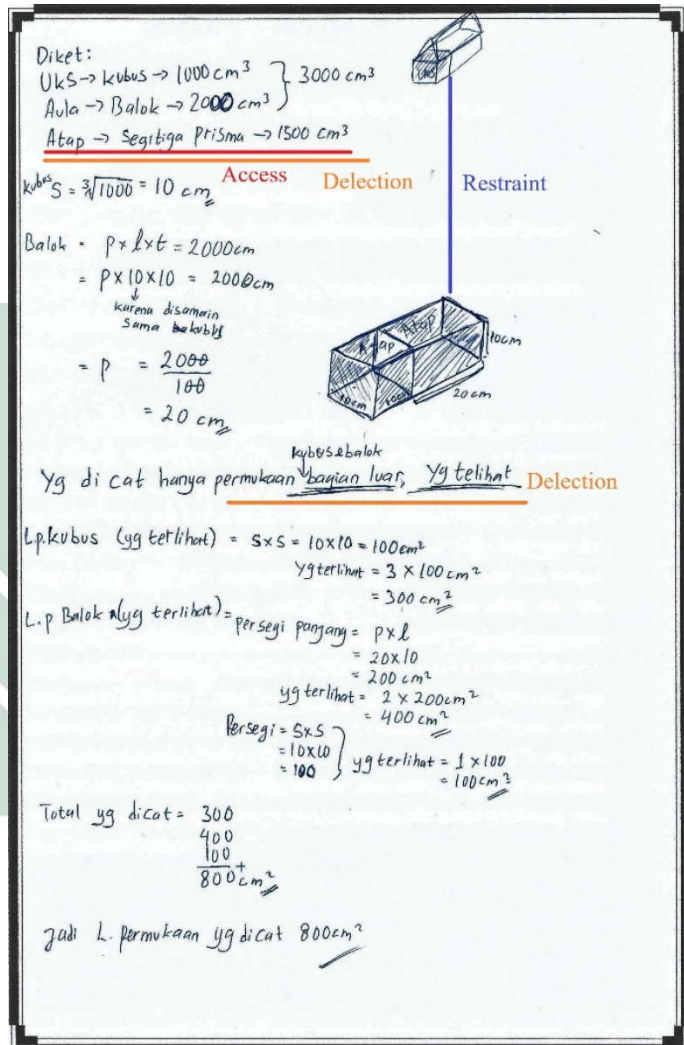 Diket:
UKS → kubus → 1000 cm³ } 3000 cm³
Aula → Balok → 2000 cm³
Atap → Segitiga Prisma → 1500 cm³
UKS
Access
Delection
Restraint
kubus S = ³√1000 = 10 cm
Balok = p x l x t = 2000cm
= p x 10 x 10 = 2000cm
karena disamain
sama kubus
= p = 2000/100
= 20 cm
Atap Atap
10cm
10cm 10cm 20cm
kubus & balok
Yg di cat hanya permukaan bagian luar, Yg telihat
Delection
L.p.kubus (yg terlihat) = s x s = 10 x 10 = 100cm²
Yg terlihat = 3 x 100 cm²
= 300 cm²
L.p Balok (yg terlihat) = persegi panjang = p x l
= 20 x 10
= 200 cm²
yg terlihat = 2 x 200cm²
= 400 cm²
Persegi = S x S
= 10 x 10
= 100 } yg terlihat = 1 x 100
= 100cm²
Total yg dicat = 300
400
100 +
800 cm²
Jadi L. permukaan yg dicat 800cm²